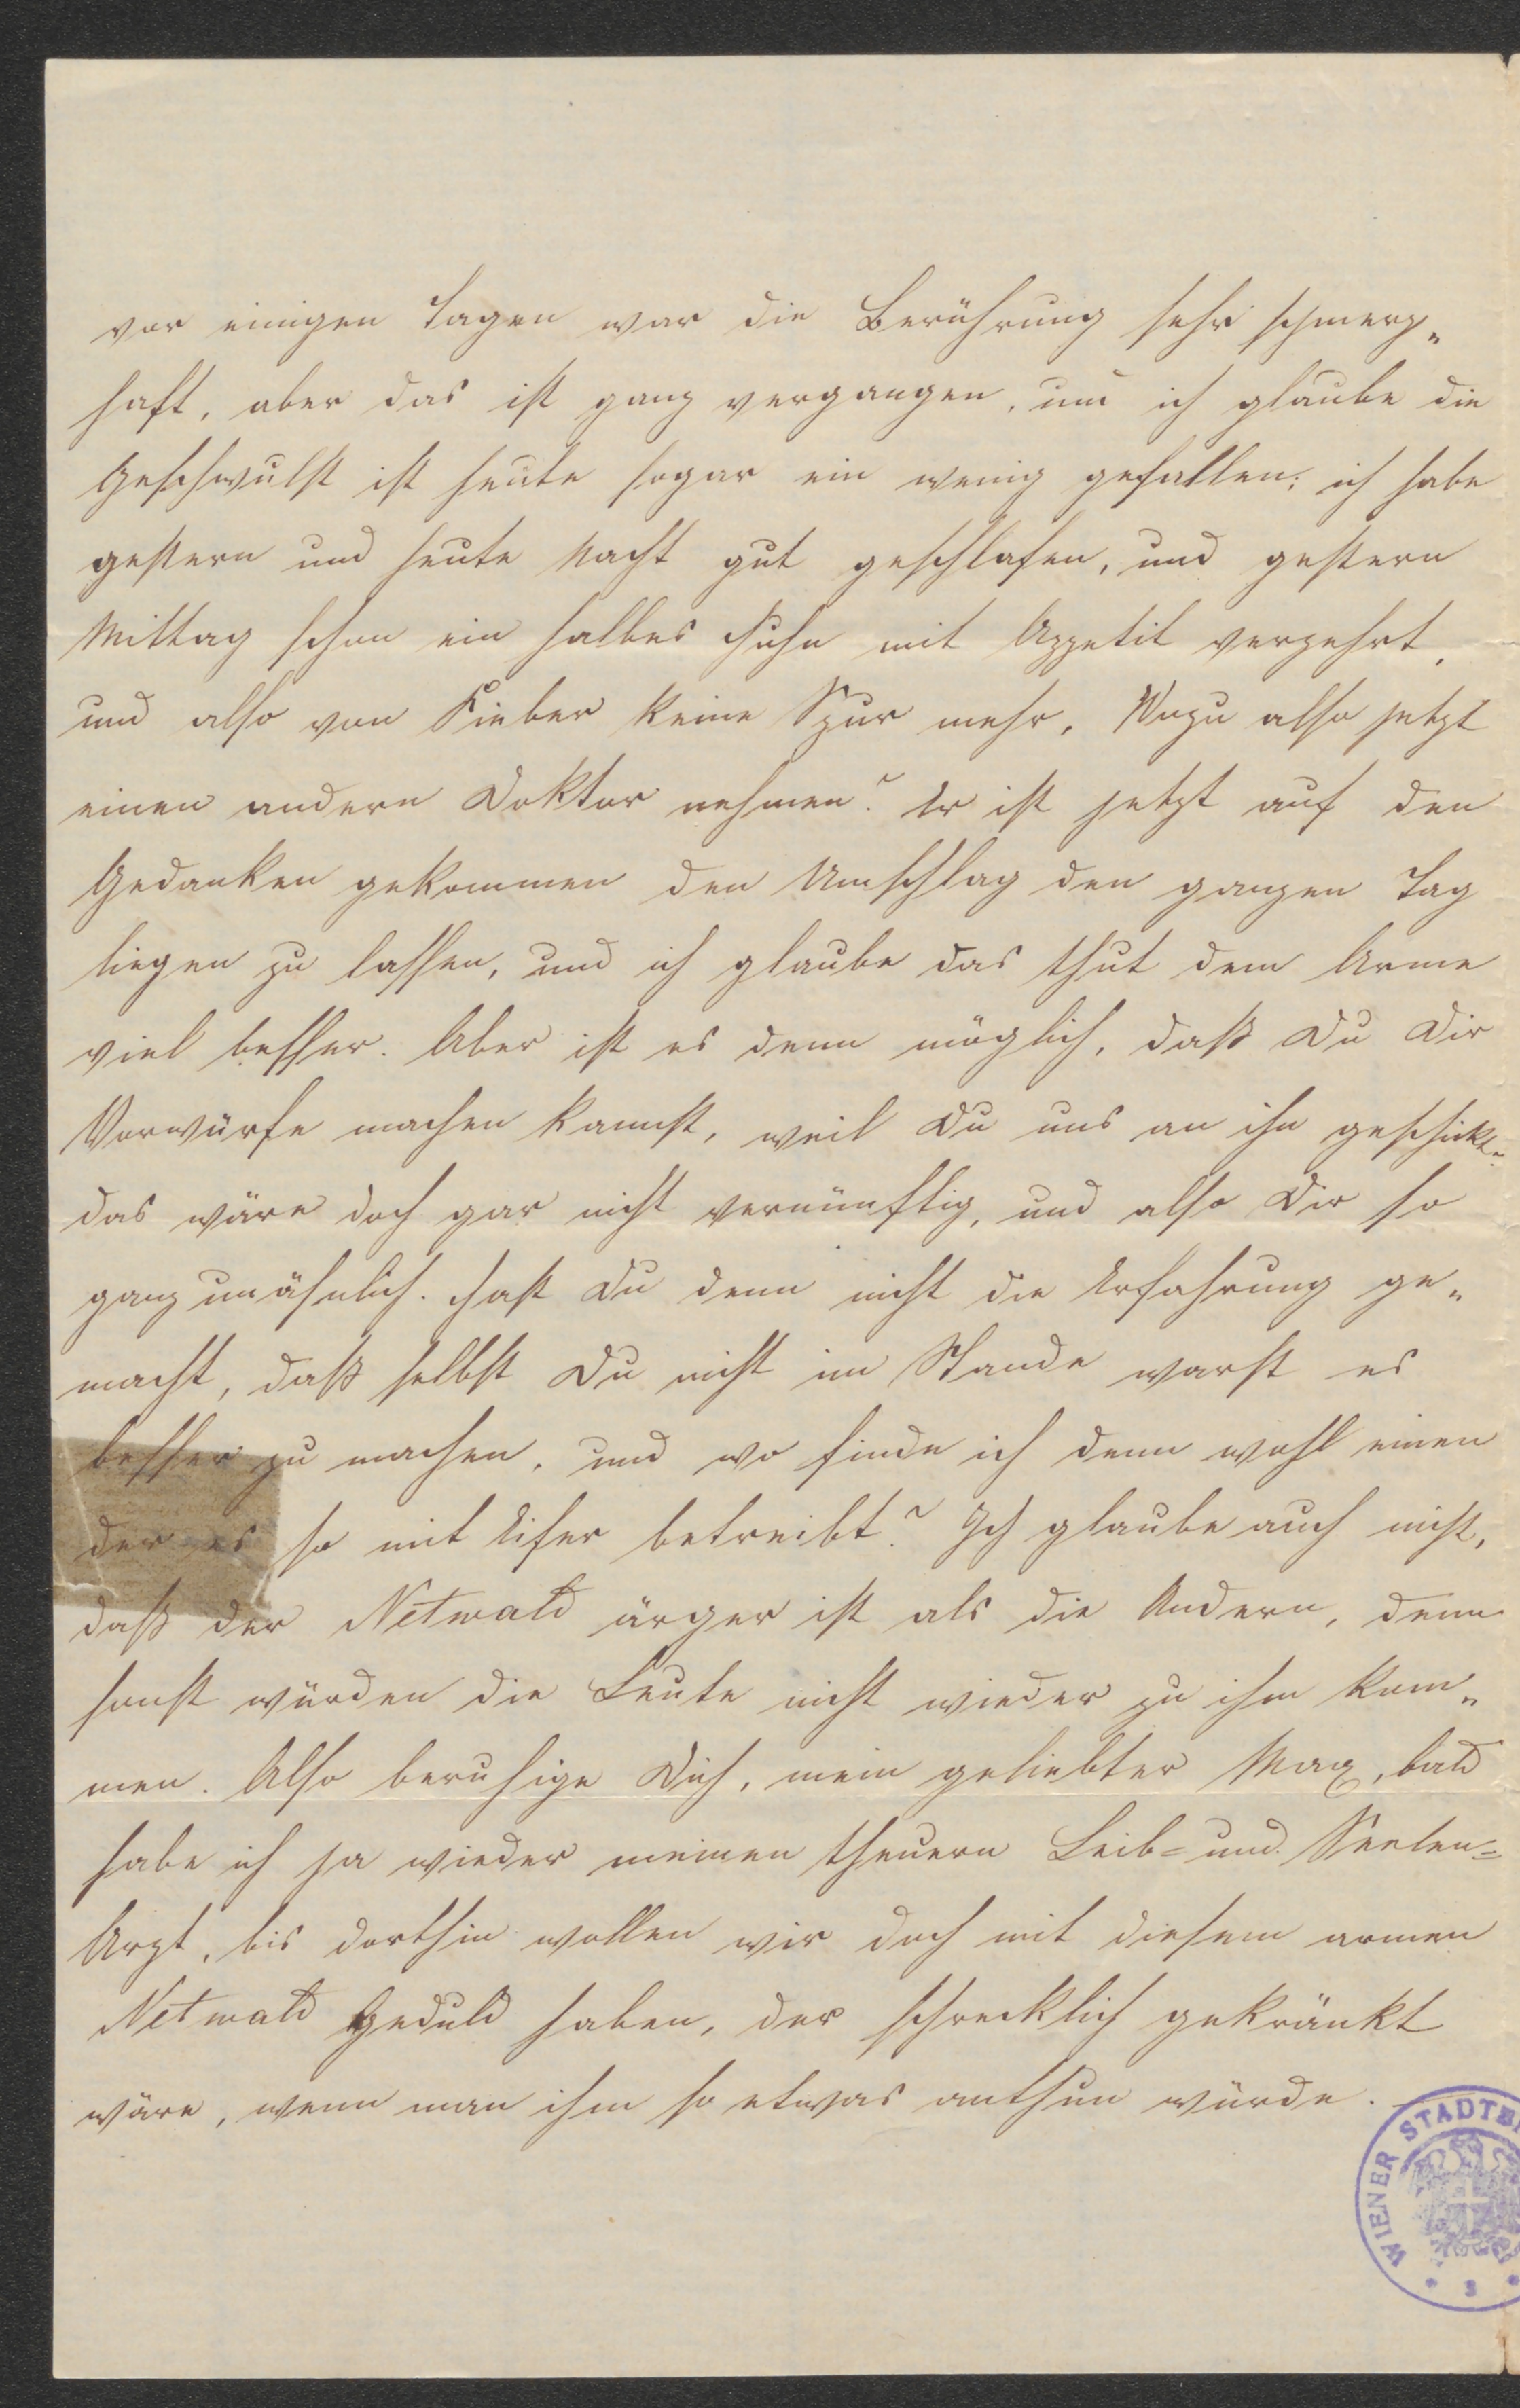 vor einigen Tagen war die Berührung sehr schmerz„
haft, aber das ist ganz vergangen, und ich glaube die
Geschwulst ist heute sogar ein wenig gefallen; ich habe
gestern und heute Nacht gut geschlafen, und gestern
Mittag schon ein halbes Huhn mit Appetit verzehrt,
und also von Fieber keine Spur mehr. Wozu also jetzt
einen andern Doktor nehmen? Er ist jetzt auf den
Gedanken gekommen den Umschlag den ganzen Tag
liegen zu lassen, und ich glaube das thut dem Arme
viel besser. Aber ist es denn möglich, daß Du Dir
Vorwürfe machen kannst, weil Du uns an ihn geschickt?
das wäre doch gar nicht vernünftig, und also Dir so
ganz unähnlich. Hast Du denn nicht die Erfahrung ge„
macht, daß selbst Du nicht im Stande warst es
besser zu machen, und wo finde ich denn wohl einen
der es so mit Eifer betreibt? Ich glaube auch nicht,
daß der Netwald ärger ist als die Andern, denn
sonst würden die Leute nicht wieder zu ihm kom„
men. Also beruhige Dich, mein geliebter Max, bald
habe ich ja wieder meinen theuern Leib= und Seelen=
Arzt, bis dorthin wollen wir doch mit diesem armen
Netwald Geduld haben, der schrecklich gekränkt
wäre, wenn man ihm so etwas anthun würde.
WIENER STADTB